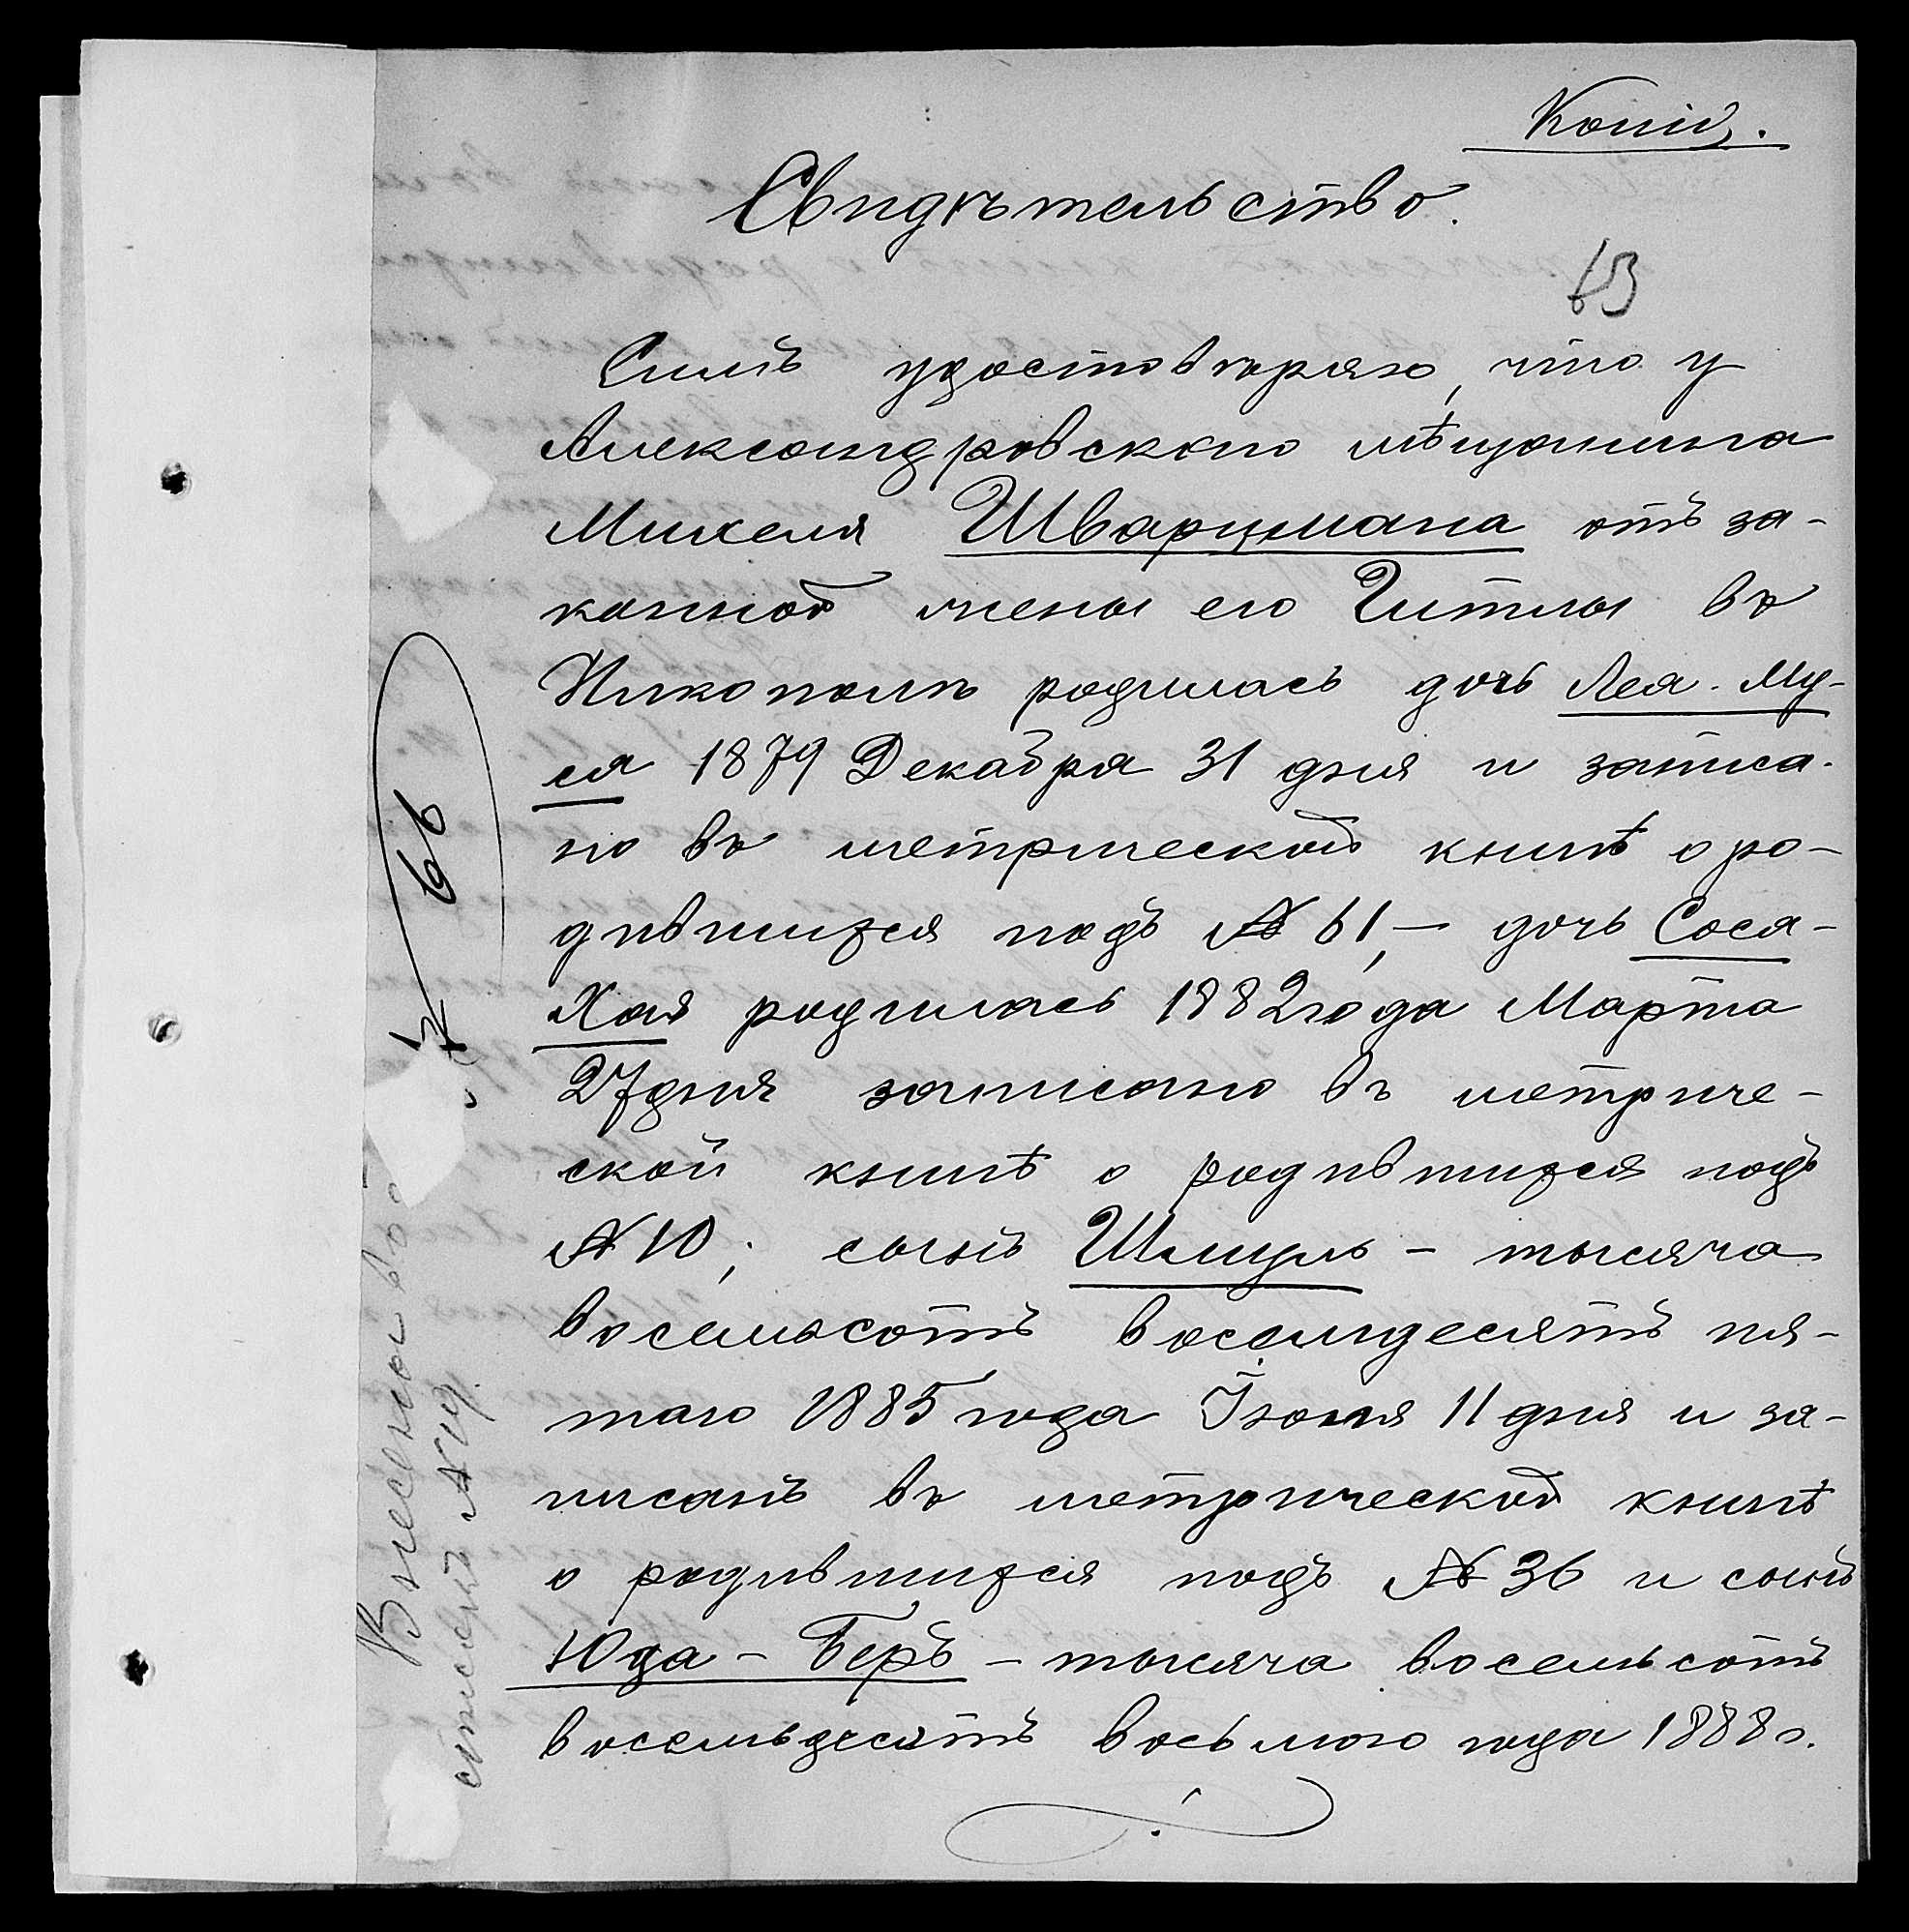 Копія.
Свидѣтельство.
13
Симъ удостовѣряю, что у
Александровскаго мѣщанина
Михеля Шварцмана отъ за-
конной жены его Гитлы въ
Никополѣ родилась дочь Лея-Му-
ся 1879 Декабря 31 дня и записа-
но въ метрической книгѣ о ро-
дившихся подъ № 61, – дочь Сося-
Хая родилась 1882 года Марта
27 дня записано въ метриче-
ской книгѣ о родившихся подъ
№ 10; сынъ Шмуль – тысяча
восемьсотъ восемдесятъ пя-
таго 1885 года Іюня 11 дня и за-
писанъ въ метрической книгѣ
о родившихся подъ № 36 и сынъ
Юда - Беръ – тысяча восемьсотъ
восемьдесятъ восьмого года 1888 г.
66
Внесены во
списокъ